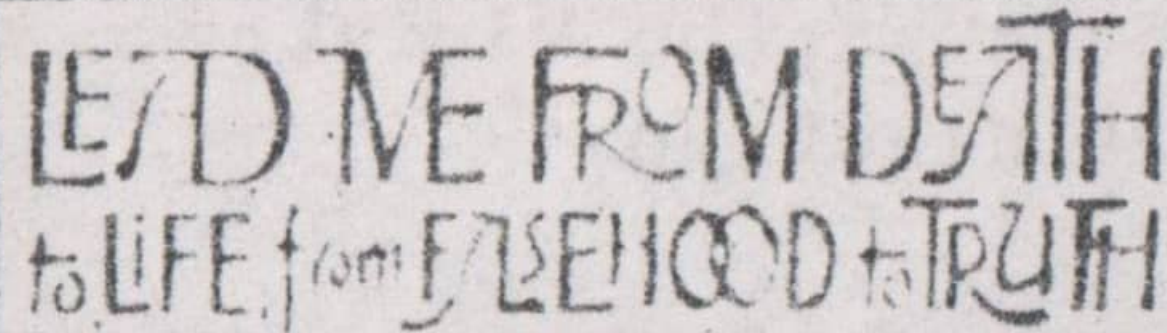 LEAD ME FROM DEATH
to LiFE, from FALSEHOOD to TRUTH